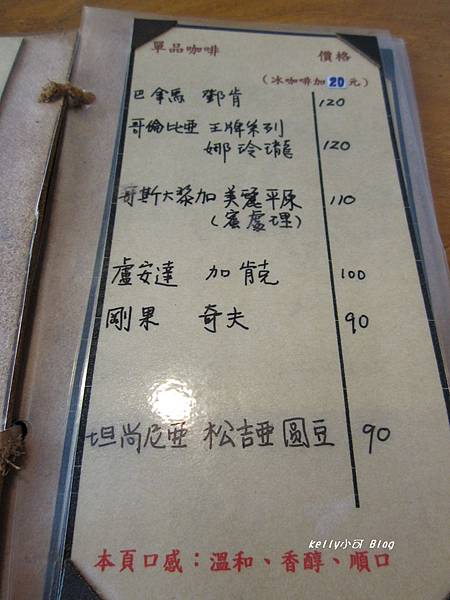 單品咖啡 價格
(冰咖啡加20元)
巴拿馬 鄧肯 120
哥倫比亞 王牌系列
娜玲瓏 120
哥斯大黎加 美麗平原 110
(蜜處理)
盧安達 加肯克 100
剛果 奇夫 90
坦尚尼亞 松吉亞圓豆 90
kelly小可 Blog
本頁口感：溫和、香醇、順口